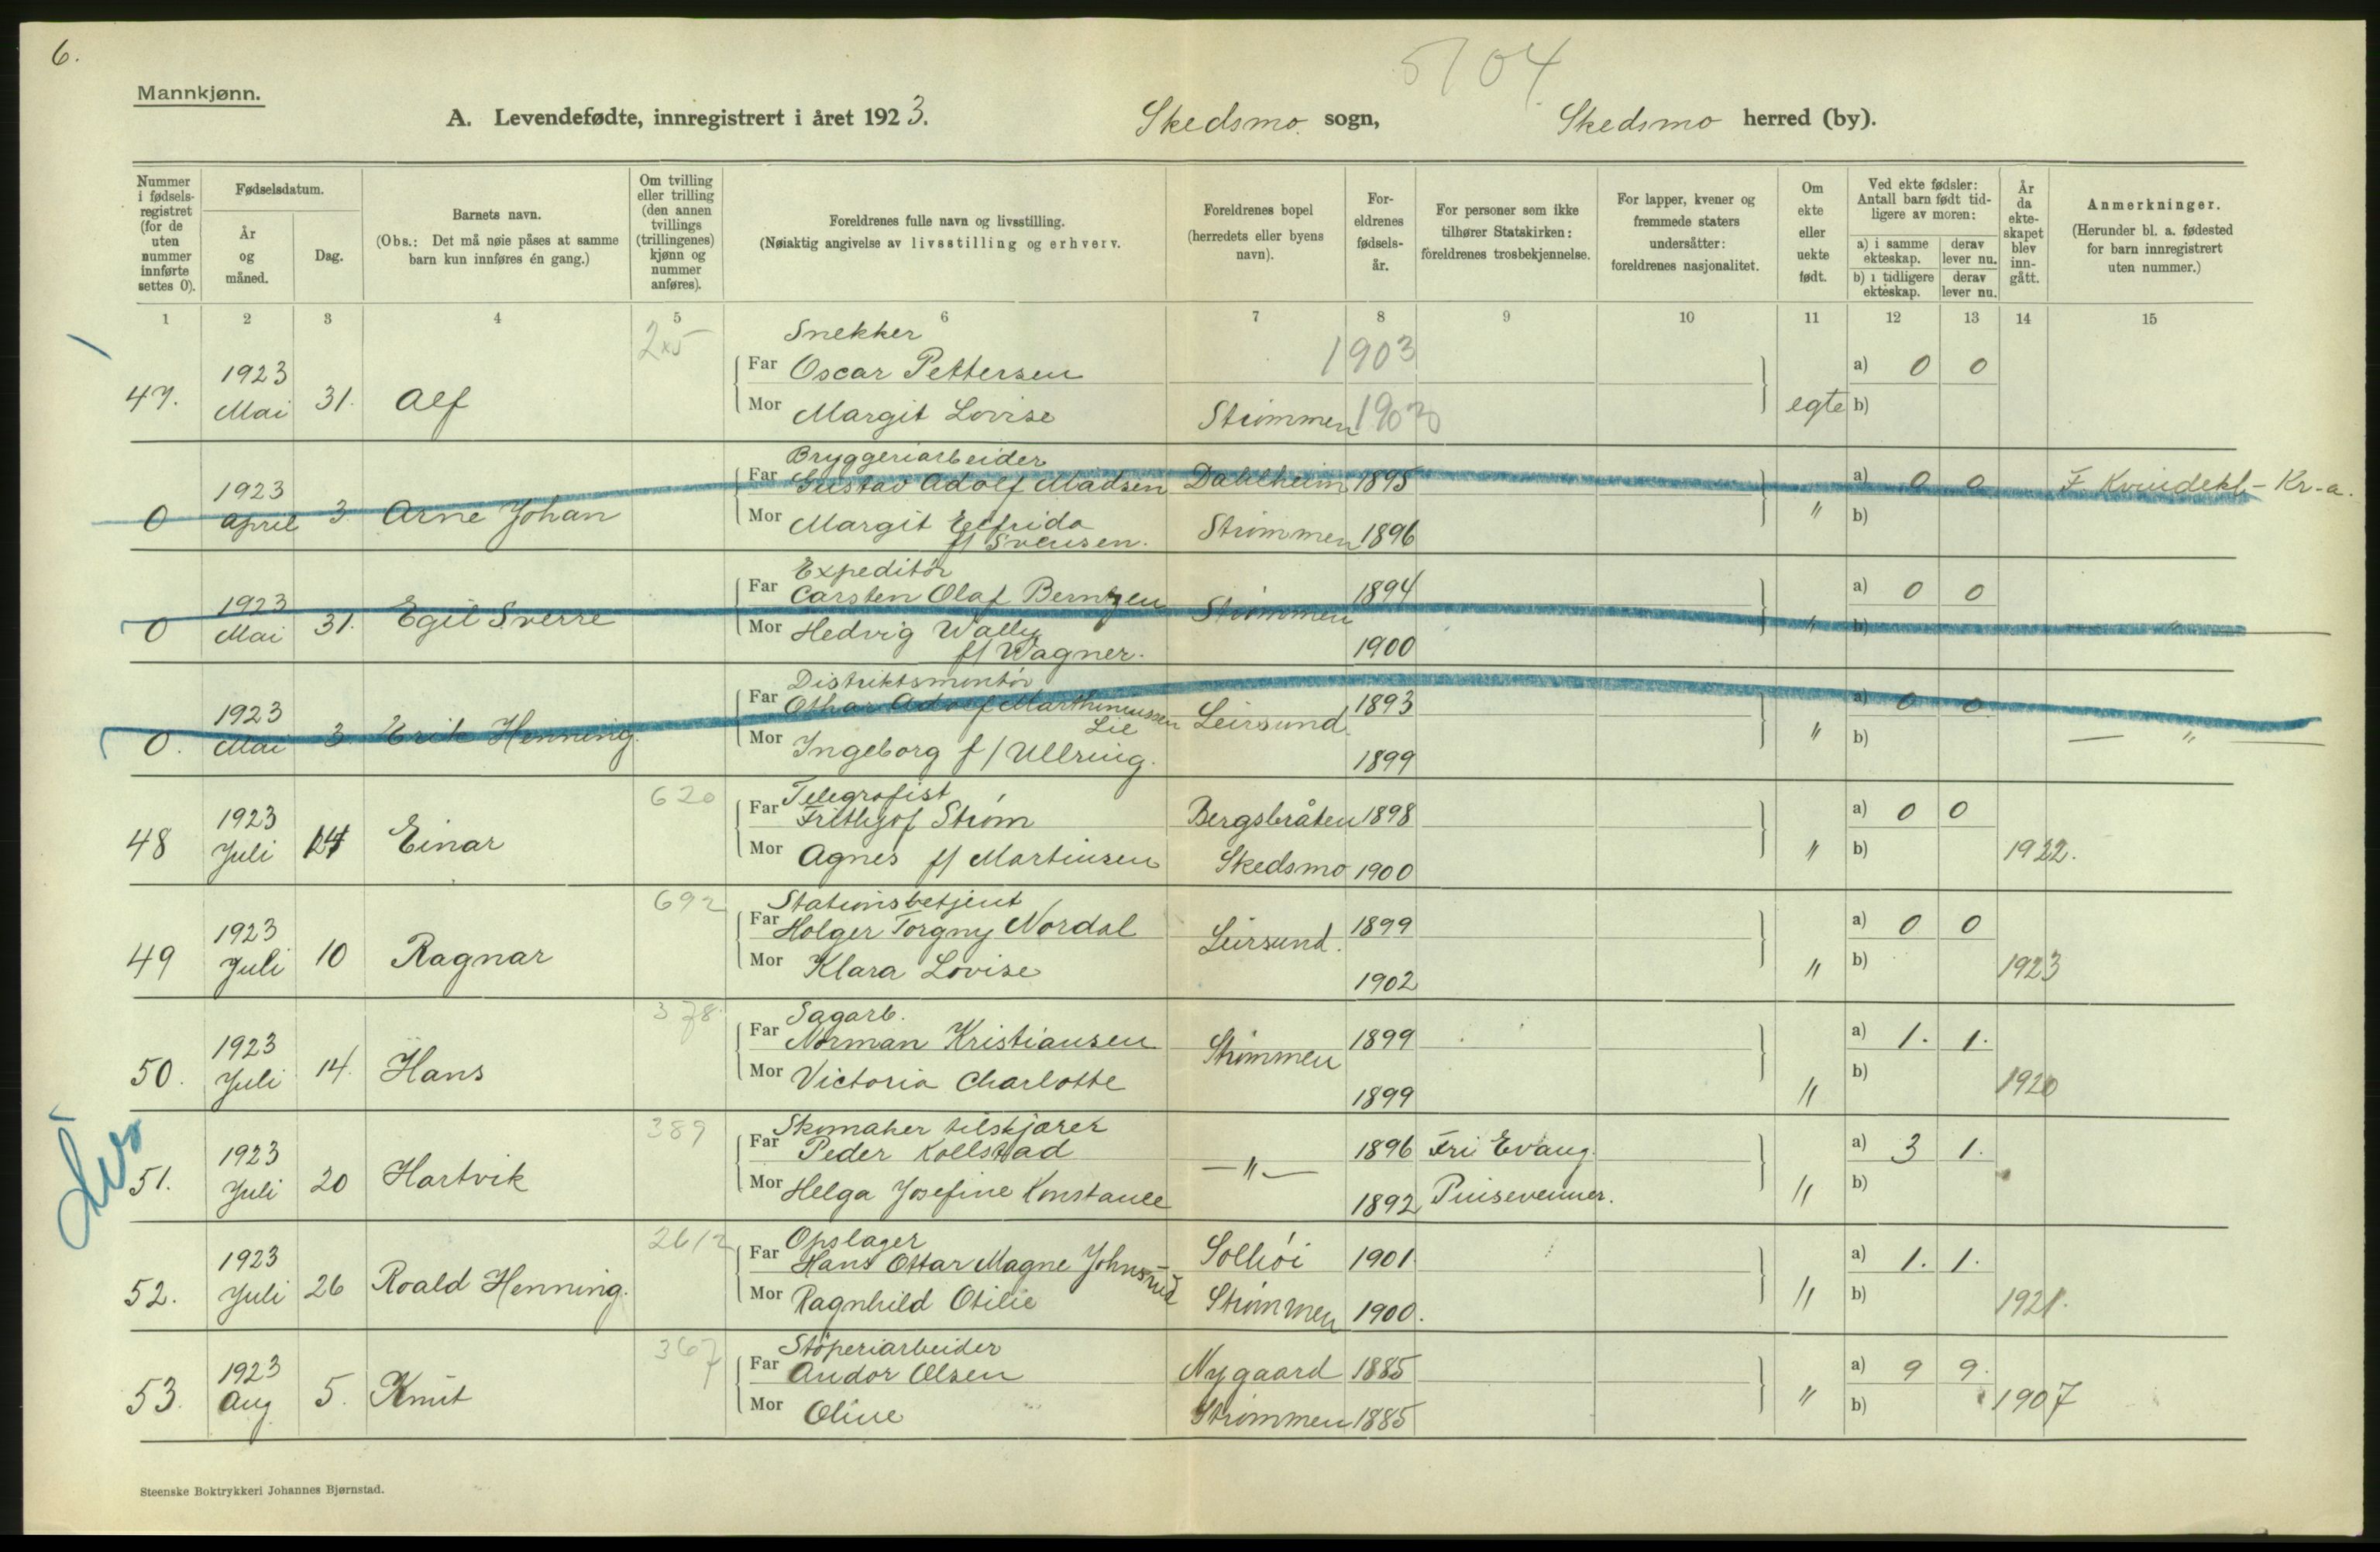 6.
5104
Mannkjønn.
A. Levendefødte, innregistrert i året 1923. Skedsmo sogn, Skedsmo herred (by).
Nummer i fødsels-registret (for de uten nummer innførte settes 0). Fødselsdatum. År og måned. Dag. Barnets navn. (Obs.: Det må nøie påses at samme barn kun innføres én gang.) Om tvilling eller trilling (den annen tvillings (trillingenes) kjønn og nummer anføres). Foreldrenes fulle navn og livsstilling. (Nøiaktig angivelse av livsstilling og erhverv. Foreldrenes bopel (herredets eller byens navn). For-eldrenes fødsels-år. For personer som ikke tilhører Statskirken: foreldrenes trosbekjennelse. For lapper, kvener og fremmede staters undersåtter: foreldrenes nasjonalitet. Om ekte eller uekte født. Ved ekte fødsler: Antall barn født tid-ligere av moren: a) i samme ekteskap. derav lever nu. b) i tidligere ekteskap. derav lever nu. År da ekte-skapet blev inn-gått. Anmerkninger. (Herunder bl. a. fødested for barn innregistrert uten nummer.)
1 2 3 4 5 6 7 8 9 10 11 12 13 14 15
Snekker
47. 1923 Mai 31. Alf Far Oscar Pettersen 1903 a) 0 0
Mor Margit Lovise Strømmen egte b)
Bryggeriarbeider
0 1923 april 3 Arne Johan Far Gustav Adolf Madsen Dahlheim 1895 a) 0 0 F. Kvindekl- Kr-a.
Mor Margit Elfrida f/ Svensen. Strømmen 1896 " b)
Expeditør
0 1923 Mai 31. Egil Sverre Far Carsten Olaf Berntzen Strømmen 1894 a) 0 0
Mor Hedvig Wally f/ Wagner. 1900 " b) "
Distriktsmontør
0. 1923 Mai 3 Erik Henning. Far Othar Adolf Marthiniussen Lie Leirsund. 1893 a) 0 0
Mor Ingeborg f/ Ullring. 1899 " b) — " —
620 Telegrafist
48 1923 Juli 14 Einar Far Frithjof Strøm Bergsbråten 1898 a) 0 0
Mor Agnes f/ Martinsen Skedsmo 1900 " b) 1922.
692 Stationsbetjent
49 1923 Juli 10 Ragnar Far Holger Torgny Nordal Leirsund. 1899 a) 0 0
Mor Klara Lovise 1902 " b) 1923
378 Sagarb.
50. 1923 Juli 14. Hans Far Norman Kristiansen Strømmen 1899 a) 1. 1.
Mor Victoria Charlotte 1899 " b) 1920
389 Skomaker tilskjærer
51. 1923 Juli 20 Hartvik Far Peder Kollstad — " — 1896 Fri Evang. a) 3 1.
Mor Helga Josefine Konstance 1892 Pinsevenner. " b)
2612 Opslager
52. 1923 Juli 26 Roald Henning. Far Hans Ottar Magne Johnsrud Solhøi 1901. a) 1. 1.
Mor Ragnhild Otilie Strømmen 1900. " b) 1921.
367 Støperiarbeider
53. 1923 Aug 5. Knut Far Andor Olsen Nygaard 1885 a) 9 9.
Mor Oline Strømmen 1885 " b) 1907
Steenske Boktrykkeri Johannes Bjørnstad.